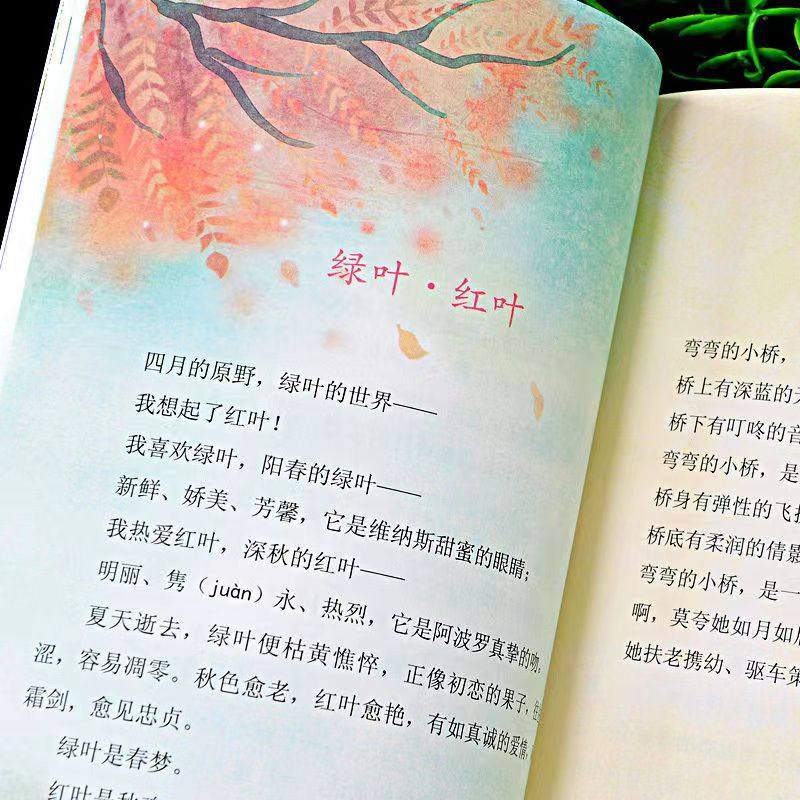 绿叶·红叶
四月的原野，绿叶的世界——
我想起了红叶！
我喜欢绿叶，阳春的绿叶——
新鲜、娇美、芳馨，它是维纳斯甜蜜的眼睛；
我热爱红叶，深秋的红叶——
明丽、隽（juàn）永、热烈，它是阿波罗真挚的吻。
夏天逝去，绿叶便枯黄憔悴，正像初恋的果子，
涩，容易凋零。秋色愈老，红叶愈艳，有如真诚的爱情，
霜剑，愈见忠贞。
绿叶是春梦。
红叶是秋
弯弯的小桥，
桥上有深蓝的天
桥下有叮咚的音
弯弯的小桥，是
桥身有弹性的飞
桥底有柔润的倩影
弯弯的小桥，是一
啊，莫夸她如月如
她扶老携幼、驱车策